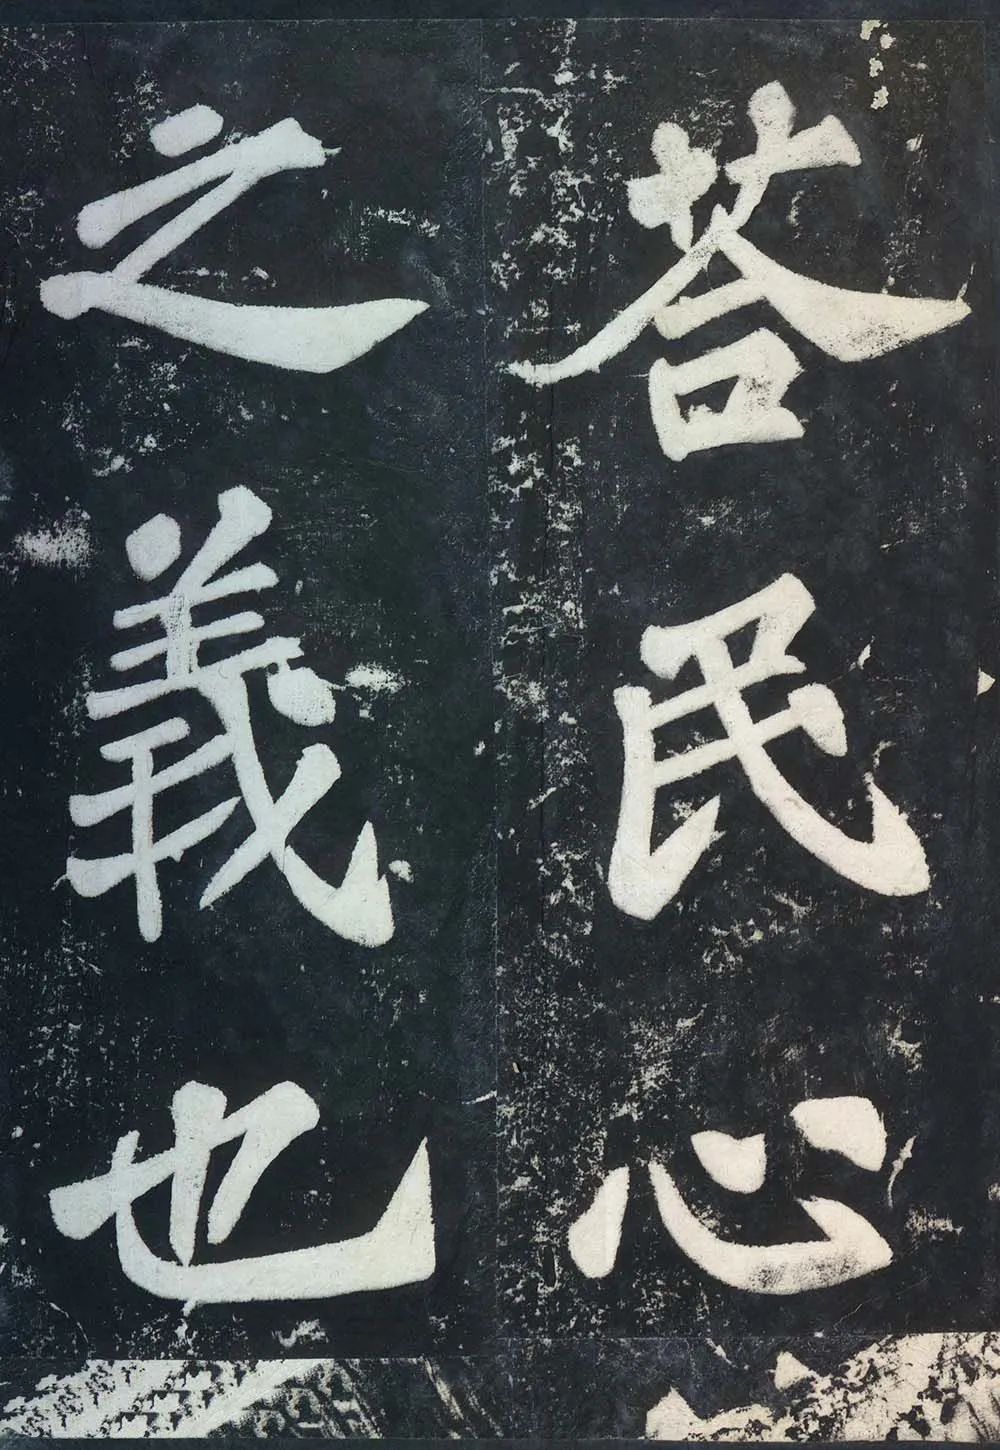 荅民心
之義也